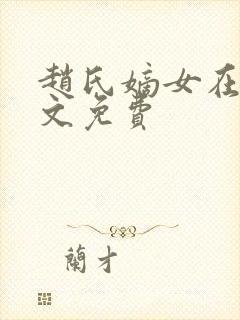 趙氏嫡女在
文免費
蘭才